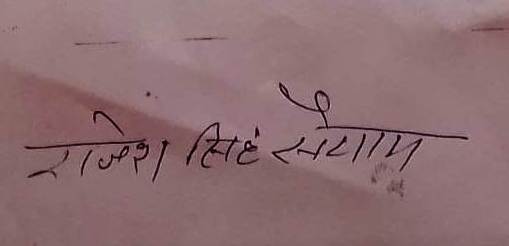 राजेश सिहं सैयाम